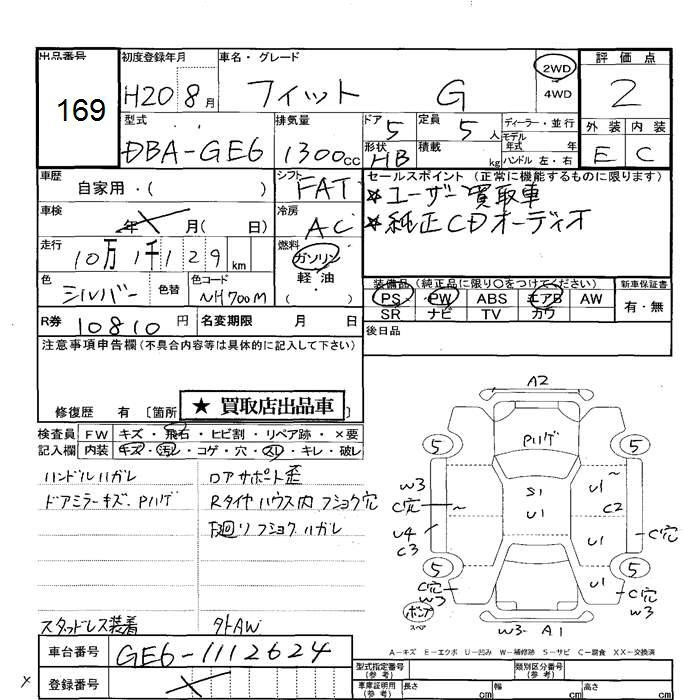 出品番号
169
初度登録年月
H20 8月
車名・グレード
フィット G
2WD
4WD
評価点
2
外装 内装
E C
型式
DBA-GE6
排気量
1300cc
ドア
5
定員
5人
形状
HB
積載
kg
ディーラー・並行
モデル年式 年
ハンドル 左・右
車歴
自家用・( )
シフト
FAT
セールスポイント (正常に機能するものに限ります)
☆ユーザー買取車
☆純正CDオーディオ
車検
年 月( 日)
冷房
AC
走行
10万1千129km
燃料
ガソリン
軽油
色
シルバー
色替
色コード
NH700M
装備品(純正品に限り○をつけてください)
PS PW ABS エアB AW
SR ナビ TV カワ
新車保証書
有・無
R券 10810円
名変期限 月 日
後日品
注意事項申告欄(不具合内容等は具体的に記入して下さい)
修復歴 有 〔箇所
★ 買取店出品車
検査員記入欄
FW キズ・飛石・ヒビ割・リペア跡・×要
内装 キズ・汚レ・コゲ・穴・スレ・キレ・破レ
ハンドルハガレ
ドアミラーキズ、Pハゲ
コアサポート歪
Rタイヤハウス内 フショク穴
下廻リフショクハガレ
スタッドレス装着
外AW
A2
Pハゲ
5 5
W3
C穴
〜
U4
C3
S1
U1
U1
〜
C2
U1
C穴
5 5
C穴
W3
U1
C穴
W3
ボンク
スペア
W3- A1
A-キズ E-エクボ U-凹み W-補修跡 S-サビ C-腐食 XX-交換済
車台番号
GE6-1112624
登録番号
型式指定番号
(参考)
類別区分番号
(参考)
車庫証明用
(参考)
長さ cm 幅 cm 高さ cm